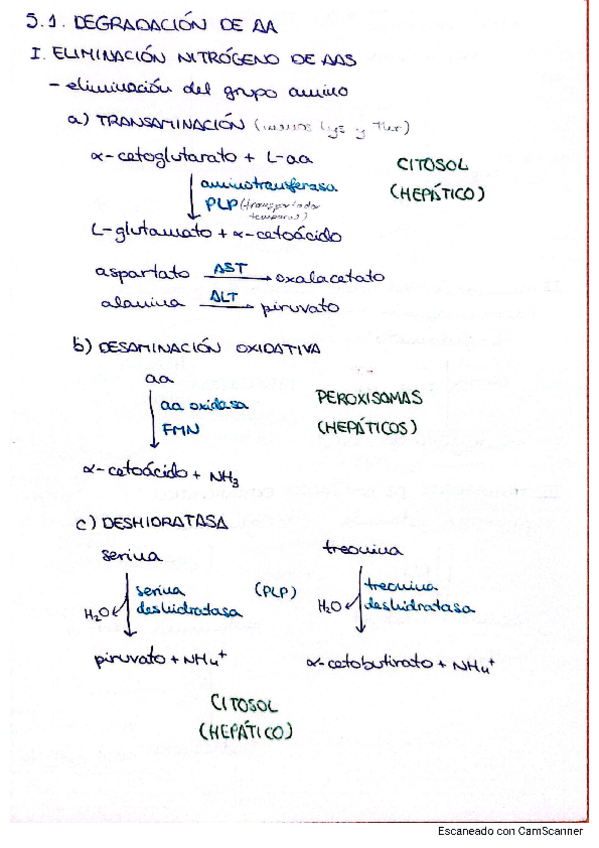 5.1. DEGRADACIÓN DE AA
I. ELIMINACIÓN NITRÓGENO DE AAS
- eliminación del grupo amino
a) TRANSAMINACIÓN (menos Lys y Thr)
α-cetoglutarato + L-aa
CITOSOL
(HEPÁTICO)
aminotransferasa
PLP (transportador
temporal)
L-glutamato + α-cetoácido
aspartato AST oxalacetato
alanina ALT piruvato
b) DESAMINACIÓN OXIDATIVA
aa
aa oxidasa
FMN
PEROXISOMAS
(HEPÁTICOS)
α-cetoácido + NH₃
c) DESHIDRATASA
serina treonina
serina (PLP) treonina
H₂O deshidratasa H₂O deshidratasa
piruvato + NH₄⁺ α-cetobutirato + NH₄⁺
CITOSOL
(HEPÁTICO)
Escaneado con CamScanner